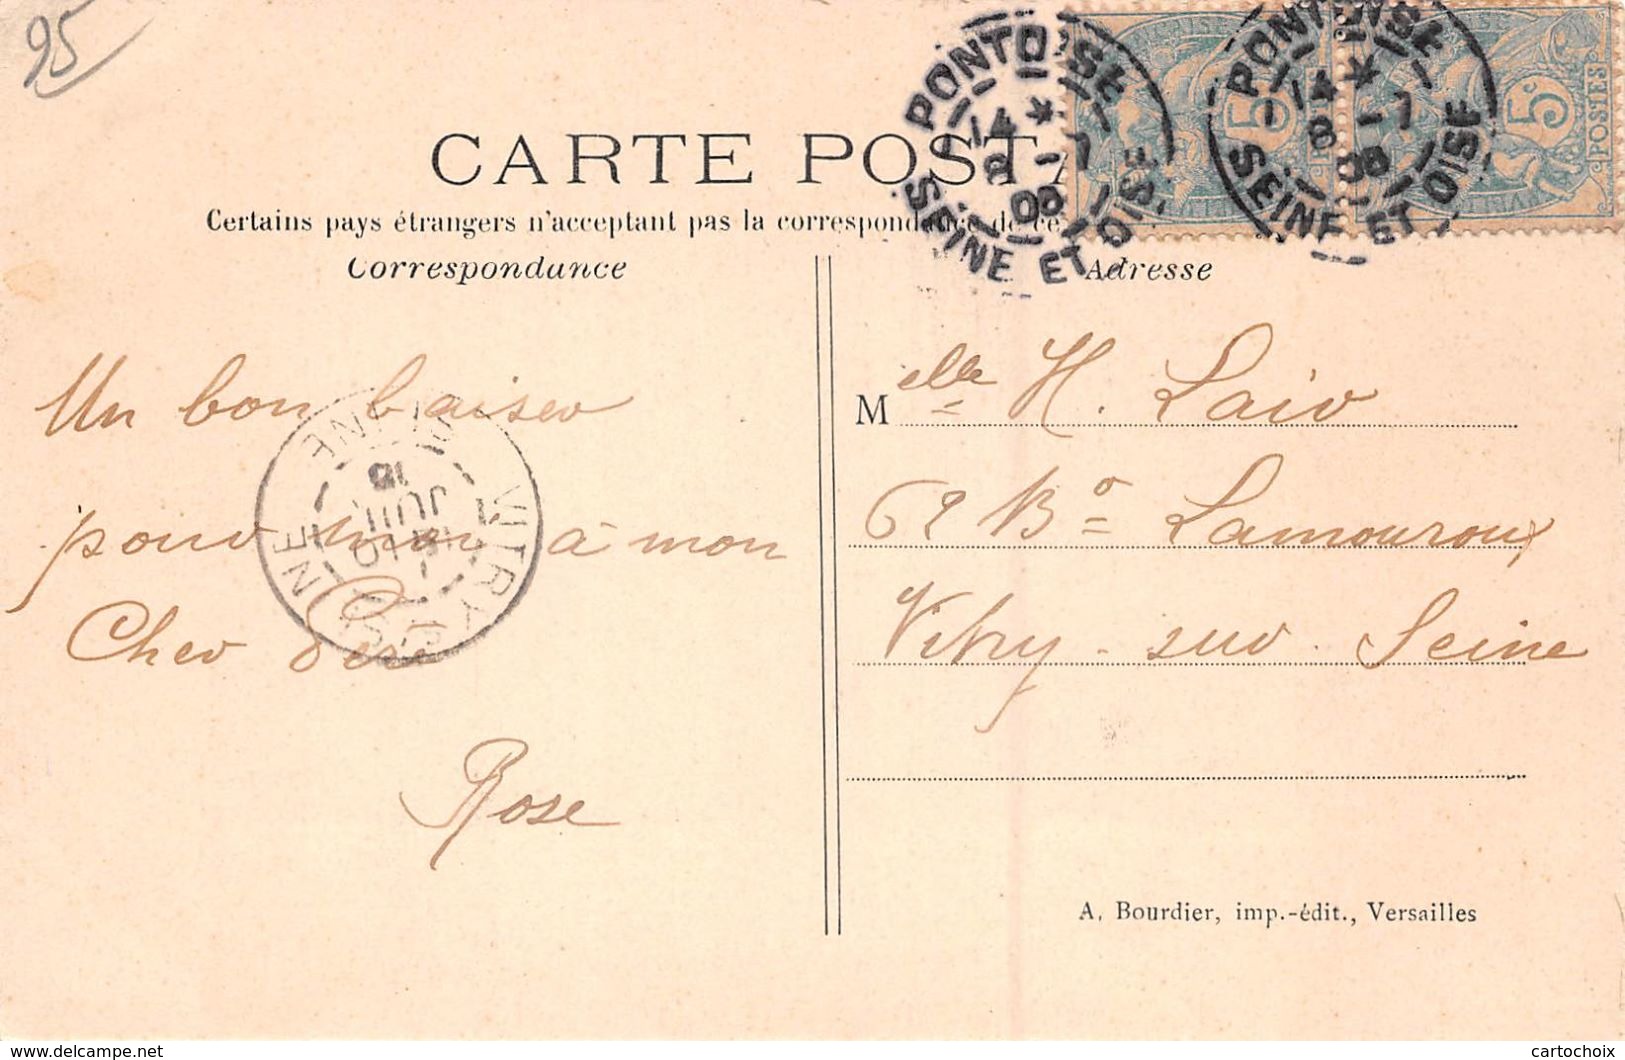 95
CARTE POSTA
Certains pays étrangers n'acceptant pas la correspondance de ce
Correspondance
Adresse
PONTOISE
14 * 7
8 08
SEINE ET OISE
PONTOISE
14 * 7
8 08
SEINE ET OISE
5c
POSTES
Un bon baiser
pour à mon
Cher
Rose
VITRY
SEINE
JUIL
Melle H. Laiv
62 Bd Lamouroux
Vitry-sur-Seine
A. Bourdier, imp.-édit., Versailles
https://www.delcampe.net
cartochoix